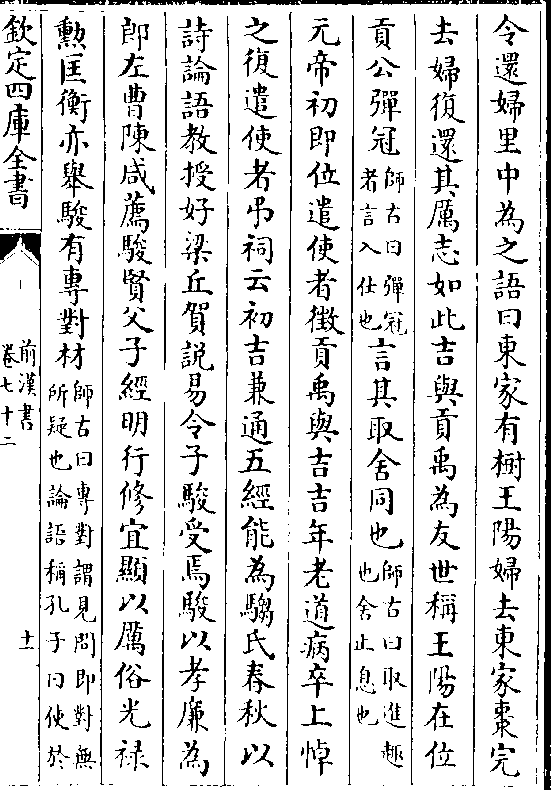 令還婦里中為之語曰東家有樹王陽婦去東家棗完
去婦復還其厲志如此吉與貢禹為友世稱王陽在位
貢公彈冠師古曰彈冠者言入仕也言其取舍同也師古曰取進趣也舍止息也
元帝初即位遣使者徵貢禹與吉吉年老道病卒上悼
之復遣使者弔祠云初吉兼通五經能為騶氏春秋以
詩論語教授好梁丘賀説易令子駿受焉駿以孝廉為
郎左曹陳咸薦駿賢父子經明行修宜顯以厲俗光禄
勲匡衡亦舉駿有專對材師古曰專對謂見問即對無所疑也論語稱孔子曰使於
欽定四庫全書
前漢書
卷七十二
十一